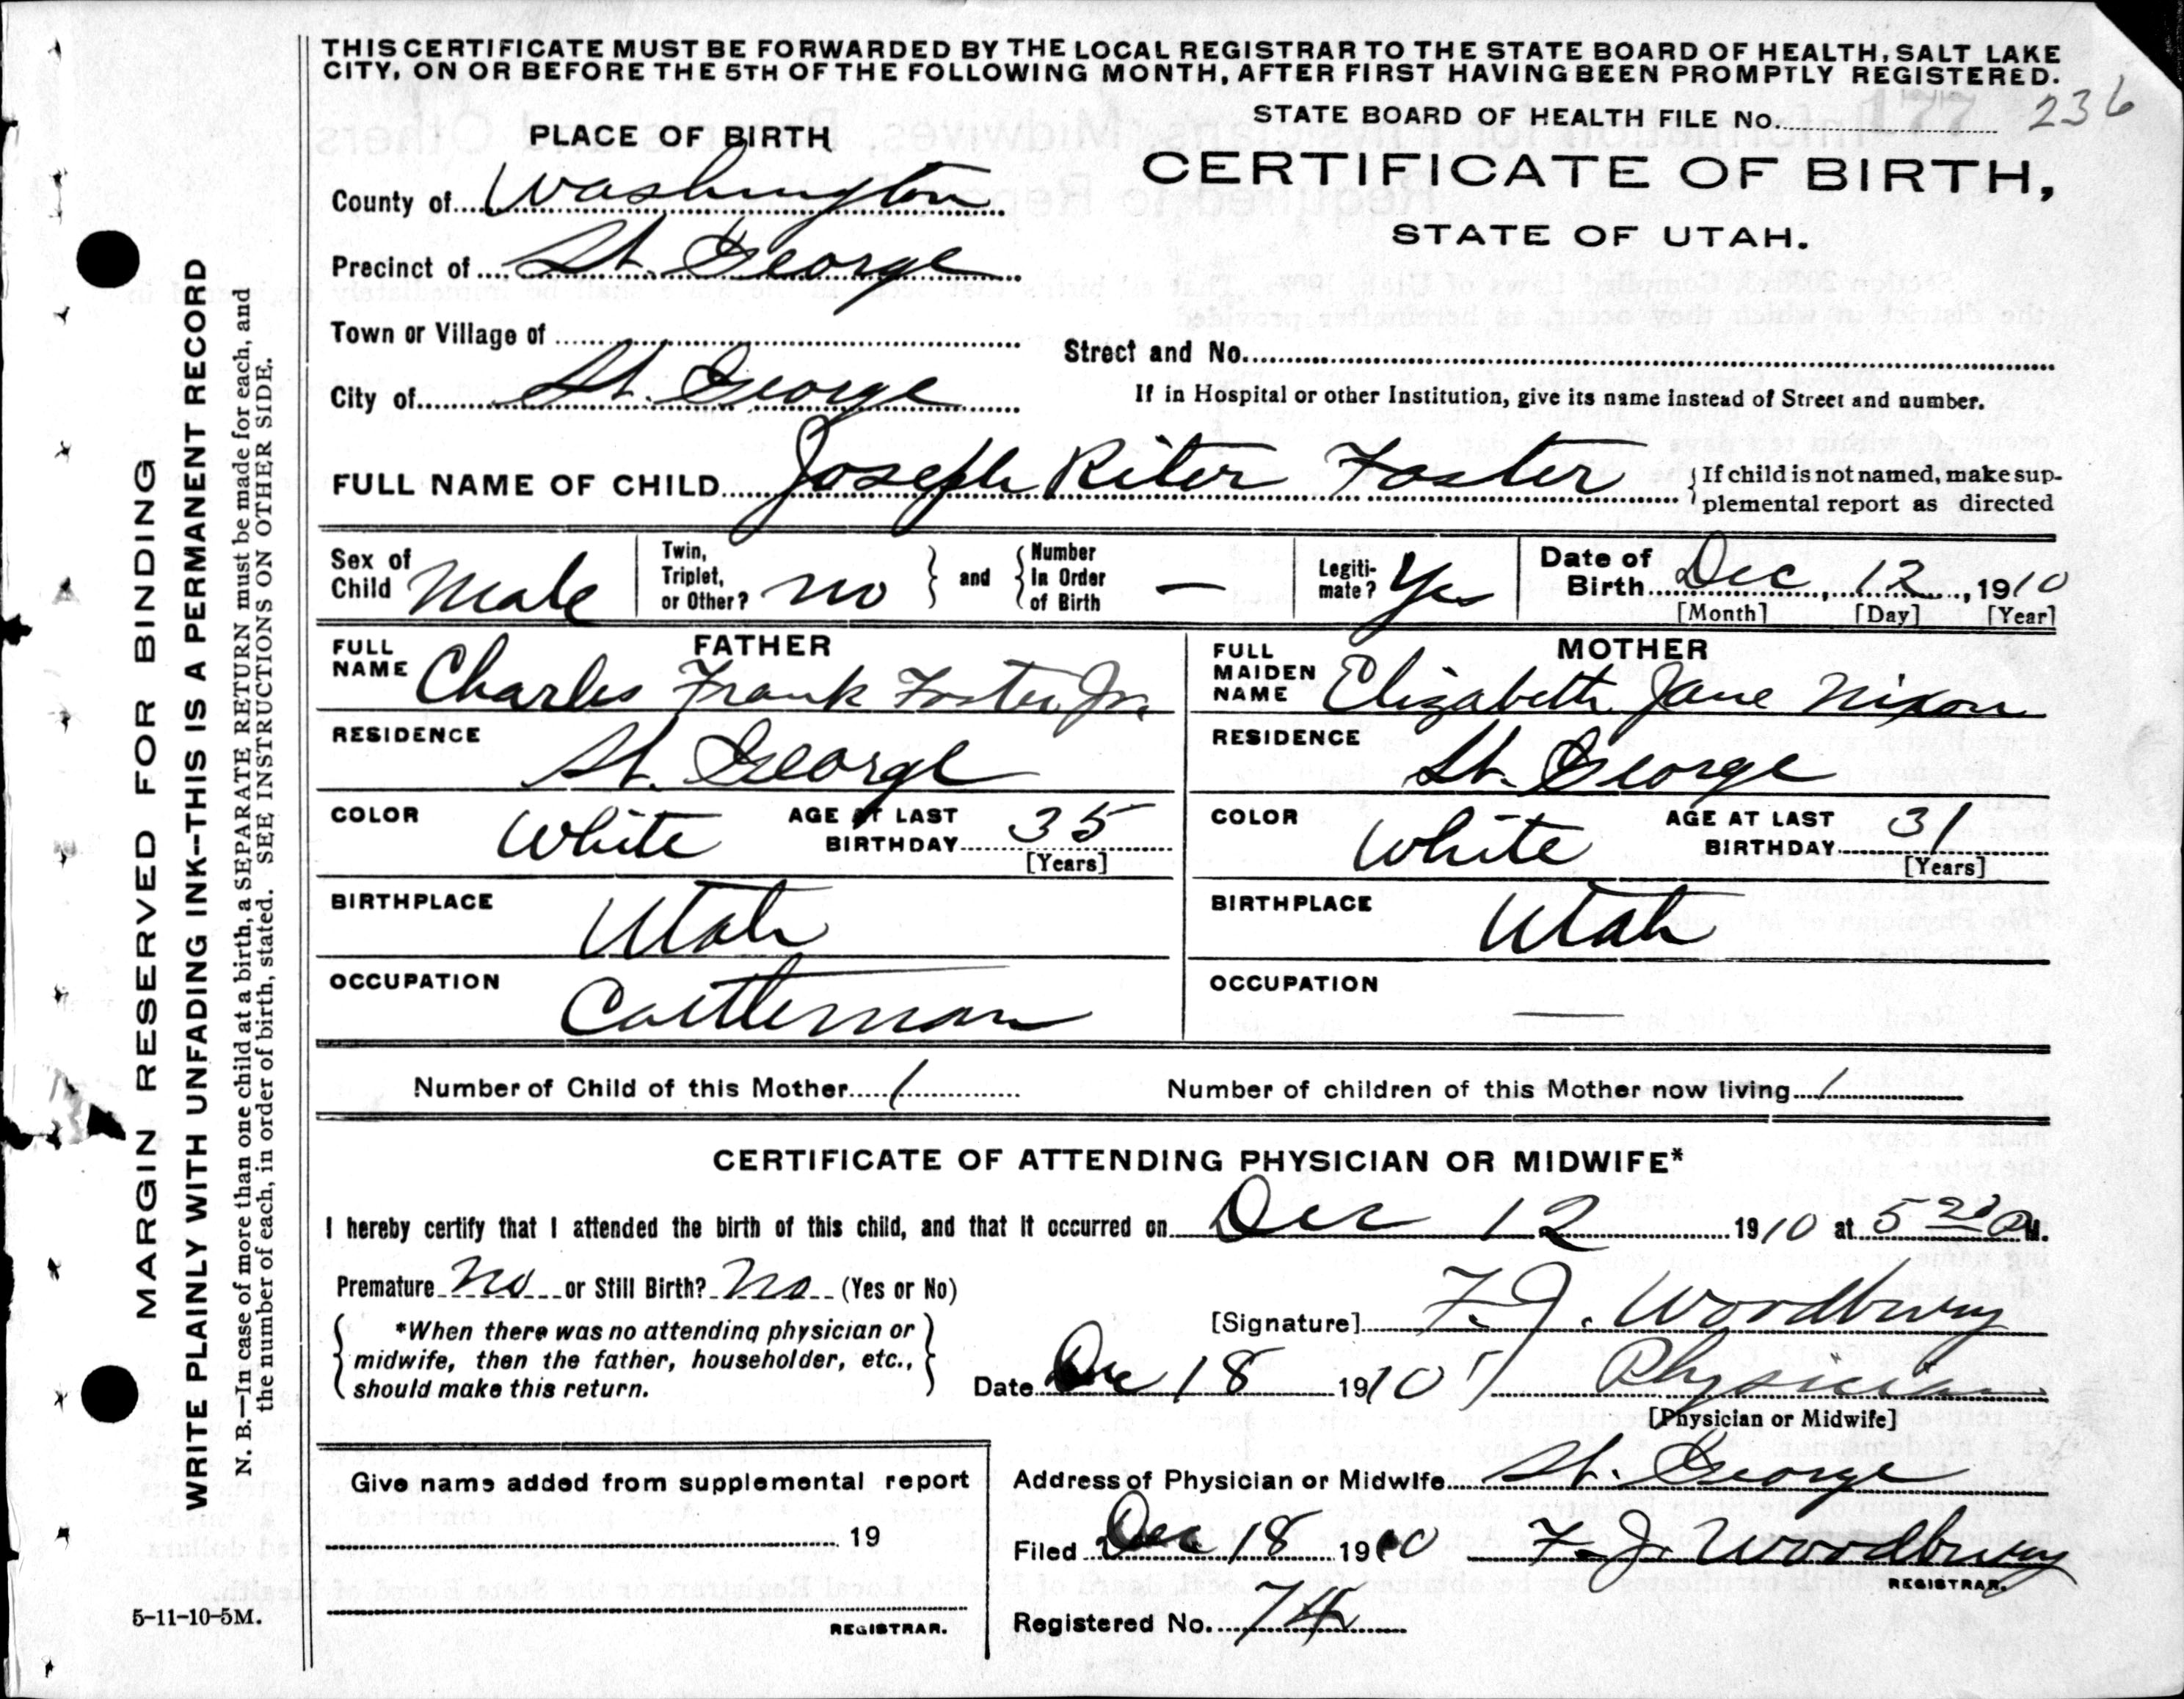 THIS CERTIFICATE MUST BE FORWARDED BY THE LOCAL REGISTRAR TO THE STATE BOARD OF HEALTH, SALT LAKE
CITY, ON OR BEFORE THE 5TH OF THE FOLLOWING MONTH, AFTER FIRST HAVING BEEN PROMPTLY REGISTERED.
STATE BOARD OF HEALTH FILE No. 177 236
PLACE OF BIRTH
CERTIFICATE OF BIRTH,
STATE OF UTAH.
County of Washington
Precinct of St. George
Town or Village of
Street and No.
City of St. George
If in Hospital or other Institution, give its name instead of Street and number.
FULL NAME OF CHILD Joseph Riter Foster
If child is not named, make sup-
plemental report as directed
Sex of Child Male
Twin, Triplet, or Other? no and Number In Order of Birth —
Legiti-mate? Yes
Date of Birth Dec, 12, 1910
[Month] [Day] [Year]
FATHER
FULL NAME Charles Frank Foster Jr.
RESIDENCE St. George
COLOR White AGE AT LAST BIRTHDAY 35
[Years]
BIRTHPLACE Utah
OCCUPATION Cattleman
MOTHER
FULL MAIDEN NAME Elizabeth Jane Nixon
RESIDENCE St. George
COLOR White AGE AT LAST BIRTHDAY 31
[Years]
BIRTHPLACE Utah
OCCUPATION —
Number of Child of this Mother 1 Number of children of this Mother now living 1
CERTIFICATE OF ATTENDING PHYSICIAN OR MIDWIFE*
I hereby certify that I attended the birth of this child, and that it occurred on Dec 12 1910 at 5 M.
Premature No or Still Birth? No (Yes or No)
*When there was no attending physician or
midwife, then the father, householder, etc.,
should make this return.
[Signature] F. J. Woodbury
Date Dec 18 1910 Physician
[Physician or Midwife]
Give name added from supplemental report
19
REGISTRAR.
Address of Physician or Midwife St. George
Filed Dec 18 1910 F. J. Woodbury
REGISTRAR.
Registered No. 74
5-11-10-5M.
MARGIN RESERVED FOR BINDING
WRITE PLAINLY WITH UNFADING INK--THIS IS A PERMANENT RECORD
N. B.—In case of more than one child at a birth, a SEPARATE RETURN must be made for each, and
the number of each, in order of birth, stated. SEE INSTRUCTIONS ON OTHER SIDE.